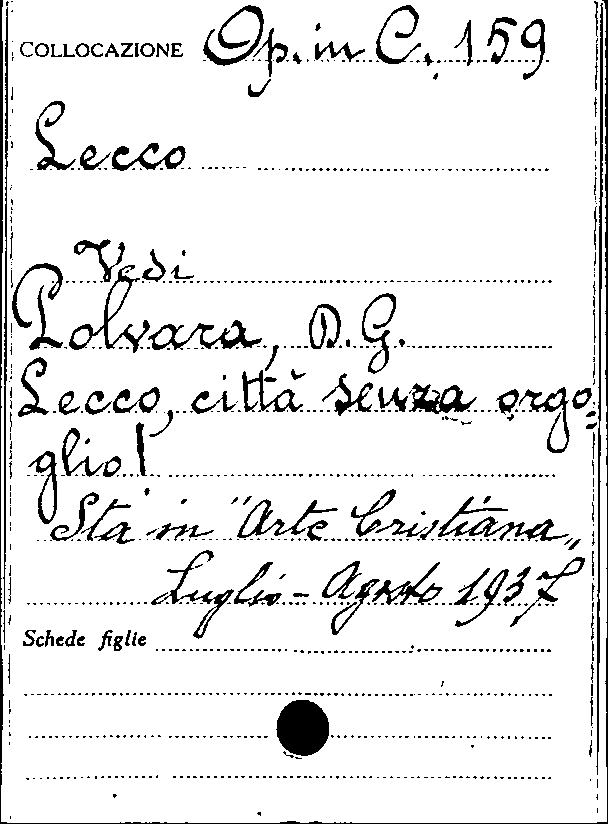 COLLOCAZIONE Op. in C. 159
Lecco
Vedi
Polvara, D. G.
Lecco, città senza orgo=
glio!
Sta in "Arte Cristiana„
Luglio - Agosto 1937
Schede figlie